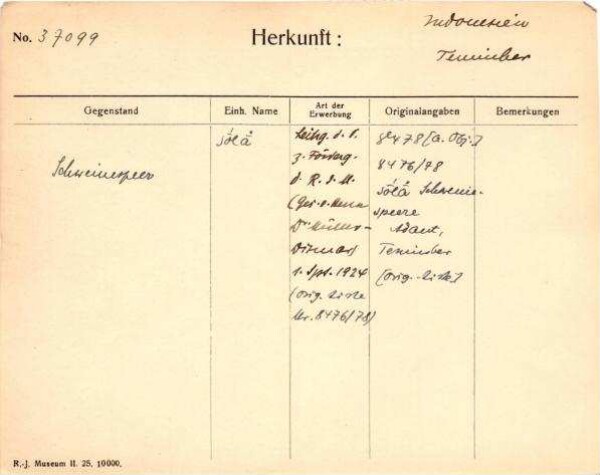 No. 37099
Herkunft:
Indonesien
Tenimber
Gegenstand
Einh. Name
Art der Erwerbung
Originalangaben
Bemerkungen
Schweinespeer
sólå
Leihg. d. V.
z. Förderg.
d. R. J. M.
(Ges. v. Herrn
Dr. Müller-
Wismar)
1. Spt. 1924
(orig. Liste
Nr. 8476/78)
8478 [a. Obj.]
8476/78
sólå Schweine-
speere
Adaut,
Tenimber
[orig. Liste]
R.-J. Museum II. 25. 10000.